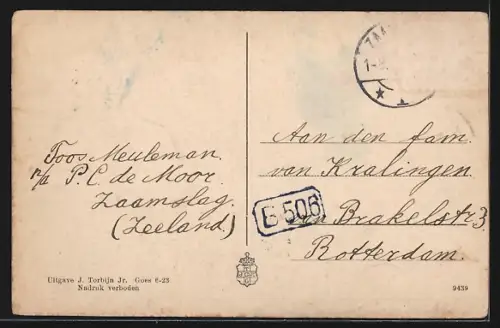 ZAA
1-
Toos Meuleman.
p/a P.C. de Moor.
Zaamslag.
(Zeeland)
Aan den fam.
van Kralingen
van Brakelstr 3
Rotterdam.
B 506
Uitgave J. Torbijn Jr. Goes 6-23
Nadruk verboden
9439